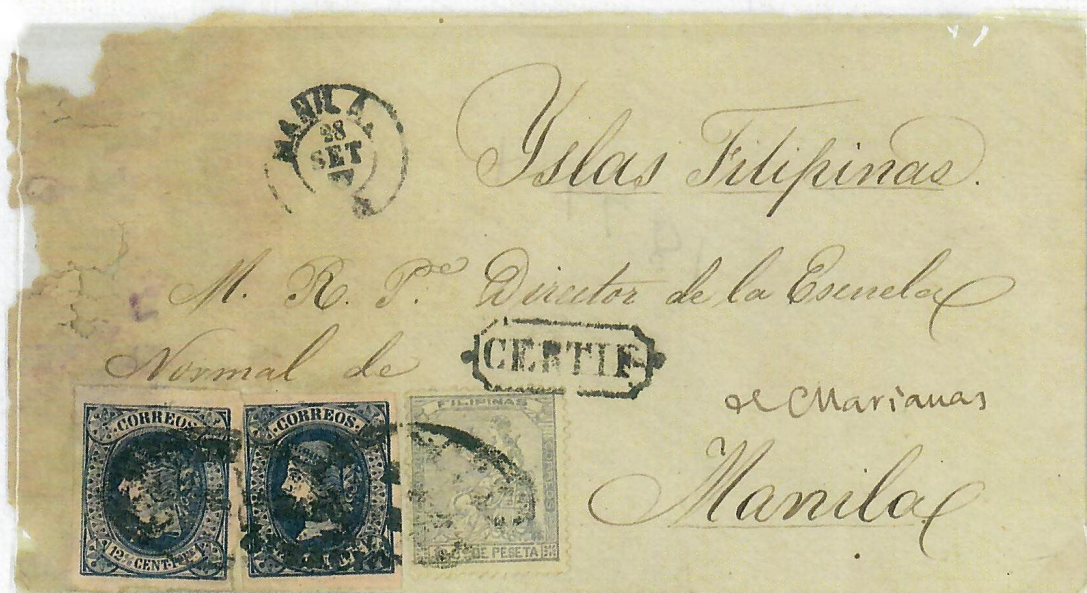 MANILA
28
SET
Yslas Filipinas.
M. R. P.e Director de la Escuela
Normal de
CERTIF
de Marianas
Manila
CORREOS
12 4/8 CENT
CORREOS
FILIPINAS
DE PESETA